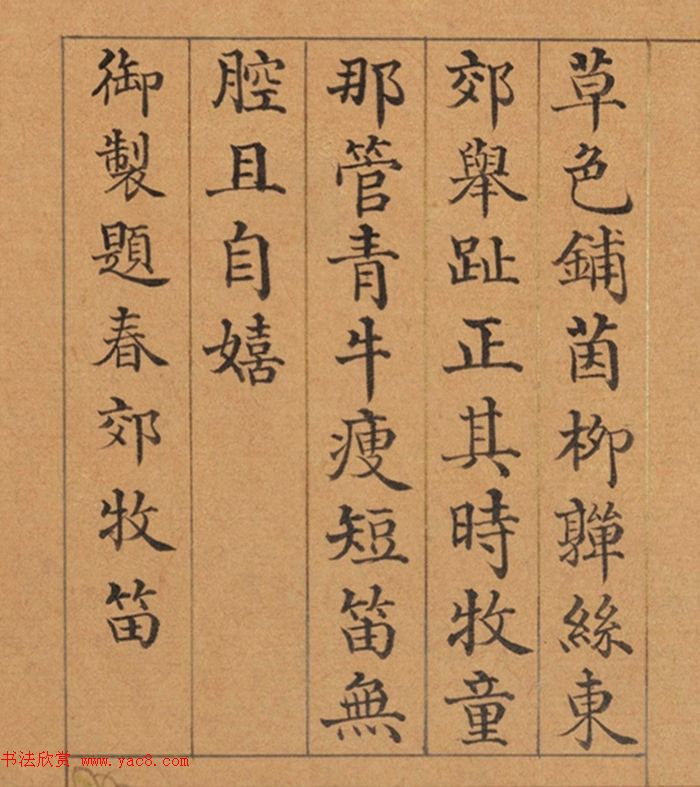 草色鋪茵柳亸絲東
郊舉趾正其時牧童
那管青牛瘦短笛無
腔且自嬉
御製題春郊牧笛
书法欣赏 www.yac8.com